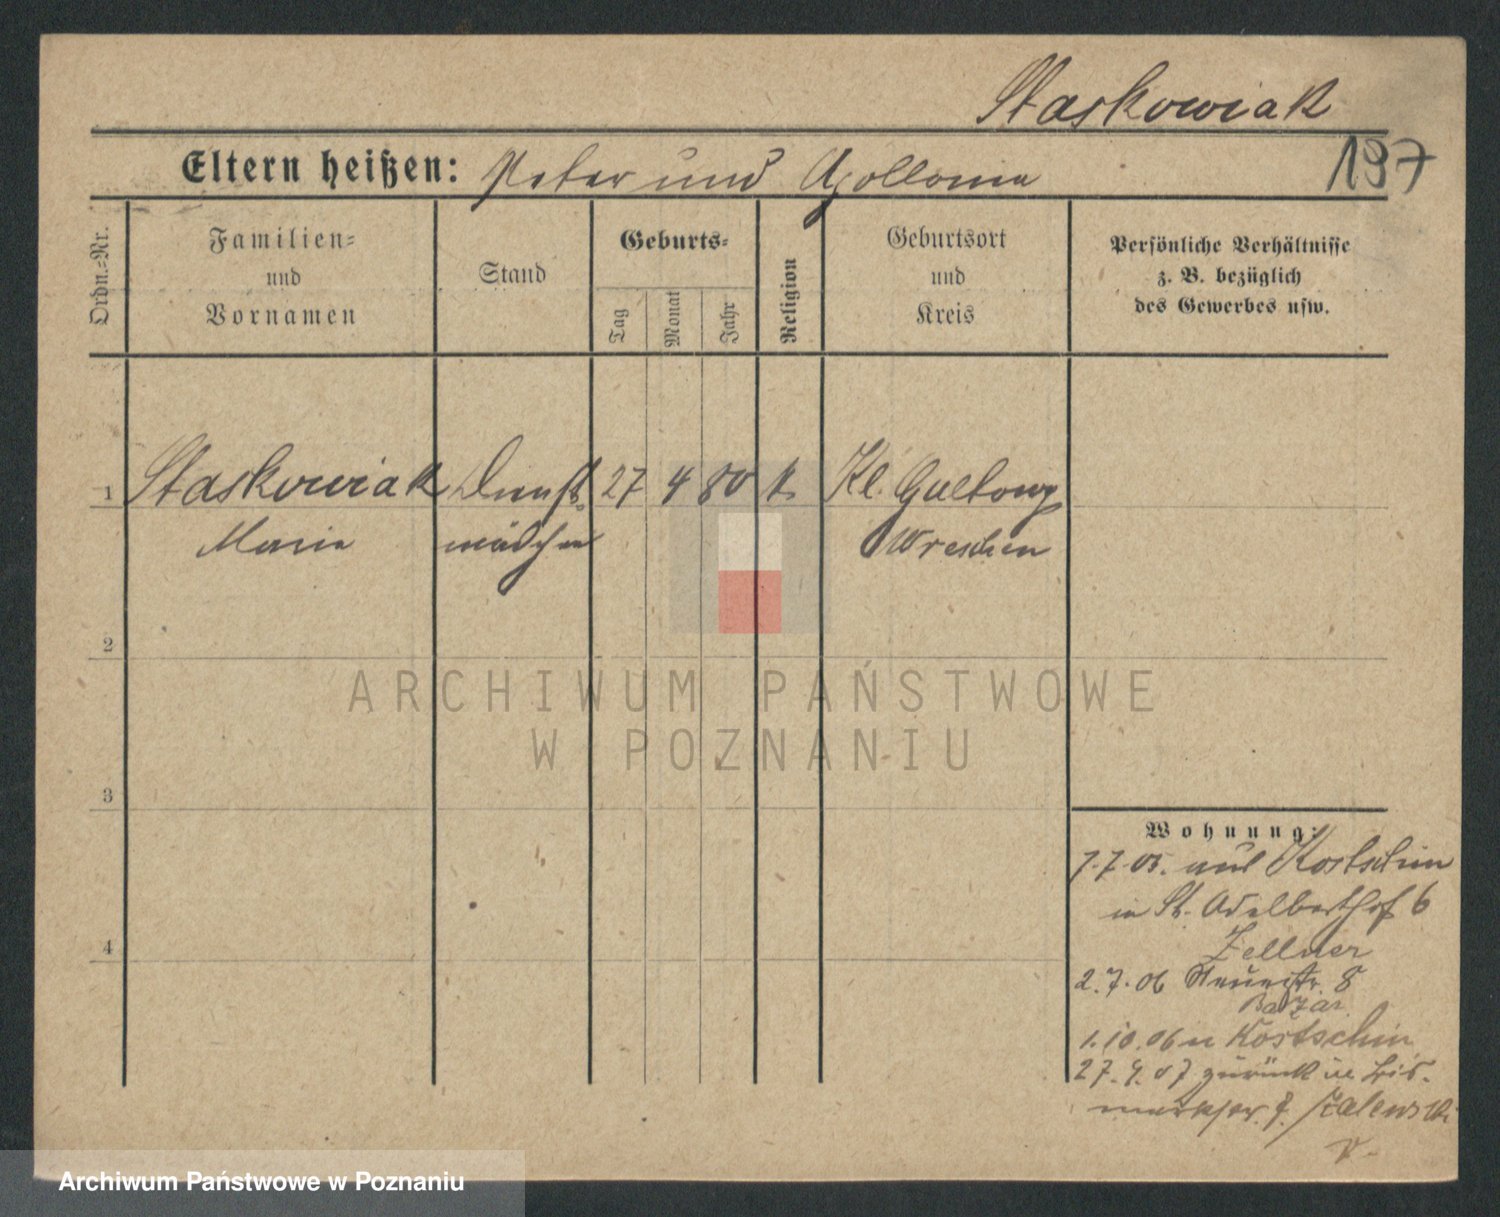 Staskowiak
197
Eltern heißen: Peter und Apollonia
Ordn.-Nr.
Familien-
und
Vornamen
Stand
Geburts-
Tag
Monat
Jahr
Religion
Geburtsort
und
Kreis
Persönliche Verhältnisse
z. B. bezüglich
des Gewerbes usw.
1 Staskowiak Dienst- 27 4 80 k. Kl. Gultowy
Marie mädchen Wreschen
2
3
4
Wohnung:
7.7.05. aus Kostschin
in St. Adalberthof 6
Zellner
2.7.06 Neuestr. 8
Bazar
1.10.06 n Kostschin
27.9.07 zurück in Bis-
Zalewski
ARCHIWUM PAŃSTWOWE
W POZNANIU
Archiwum Państwowe w Poznaniu